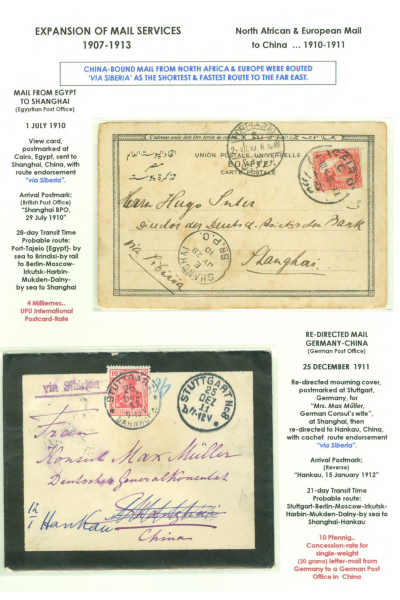 EXPANSION OF MAIL SERVICES
1907-1913
North African & European Mail
to China … 1910-1911
CHINA-BOUND MAIL FROM NORTH AFRICA & EUROPE WERE ROUTED
'VIA SIBERIA' AS THE SHORTEST & FASTEST ROUTE TO THE FAR EAST.
MAIL FROM EGYPT
TO SHANGHAI
(Egyptian Post Office)
1 JULY 1910
View card,
postmarked at
Cairo, Egypt, sent to
Shanghai, China, with
route endorsement
"via Siberia".
Arrival Postmark:
(British Post Office)
"Shanghai BPO,
29 July 1910"
28-day Transit Time
Probable route:
Port-Tajeio (Egypt)- by
sea to Brindisi-by rail
to Berlin-Moscow-
Irkutsk-Harbin-
Mukden-Dalny-
by sea to Shanghai
4 Milliemes..
UPU International
Postcard-Rate
UNION POSTALE UNIVERSELLE
CARTE POSTALE
Herrn Hugo Suter
Shanghai
via Siberia
SHANGHAI
BR.P.O.
CAIRO
RE-DIRECTED MAIL
GERMANY-CHINA
(German Post Office)
25 DECEMBER 1911
Re-directed mourning cover,
postmarked at Stuttgart,
Germany, for
"Mrs. Max Müller,
German Consul's wife",
at Shanghai, then
re-directed to Hankau, China,
with cachet route endorsement
"via Siberia".
Arrival Postmark:
(Reverse)
"Hankau, 15 January 1912"
21-day Transit Time
Probable route:
Stuttgart-Berlin-Moscow-Irkutsk-
Harbin-Mukden-Dalny-by sea to
Shanghai-Hankau
10 Pfennig..
Concession-rate for
single-weight
(20 grams) letter-mail from
Germany to a German Post
Office in China
via Sibirien
STUTTGART
STUTTGART No8
25
DEZ
11
Frau
Konsul Max Müller
Deutsches Generalkonsulat
12/1 Hankau
China